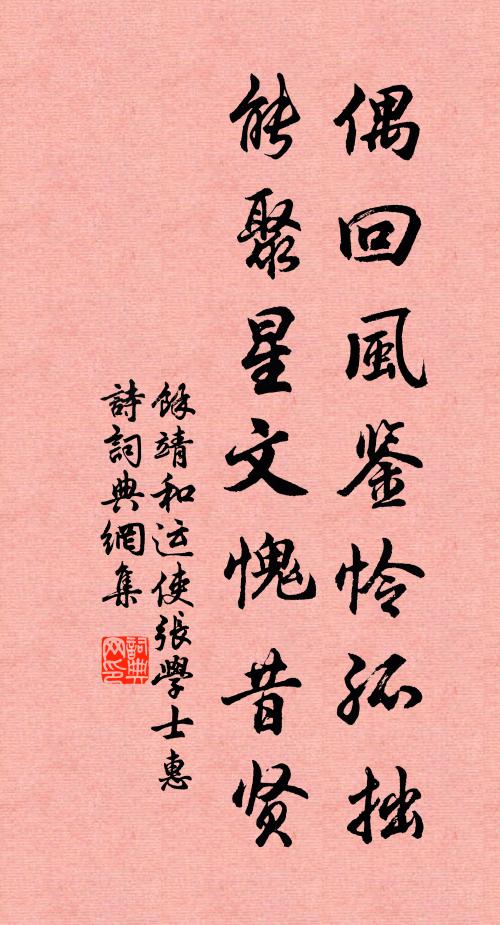 偶回風鉴怜孤拙
能聚星文愧昔贤
餘靖和运使張學士惠
詩詞典網集
詞典网印